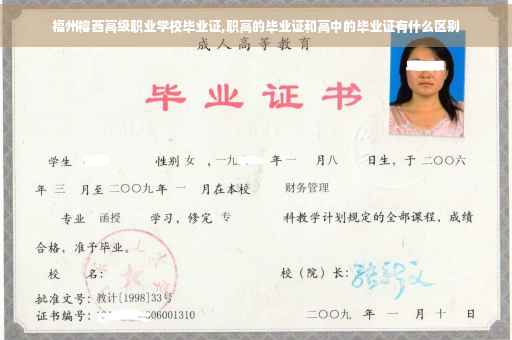 福州榕西高级职业学校毕业证,职高的毕业证和高中的毕业证有什么区别
成人高等教育
毕业证书
学生 性别 女 ,一九 年一 月八 日生,于二〇〇六
年 三 月至二〇〇九年 一 月在本校 财务管理
专业 函授 学习,修完 专 科教学计划规定的全部课程,成绩
合格,准予毕业。
校 名: 校(院)长:
批准文号:教计[1998]33号
证书编号: 06001310 二〇〇九 年 一 月 十 日